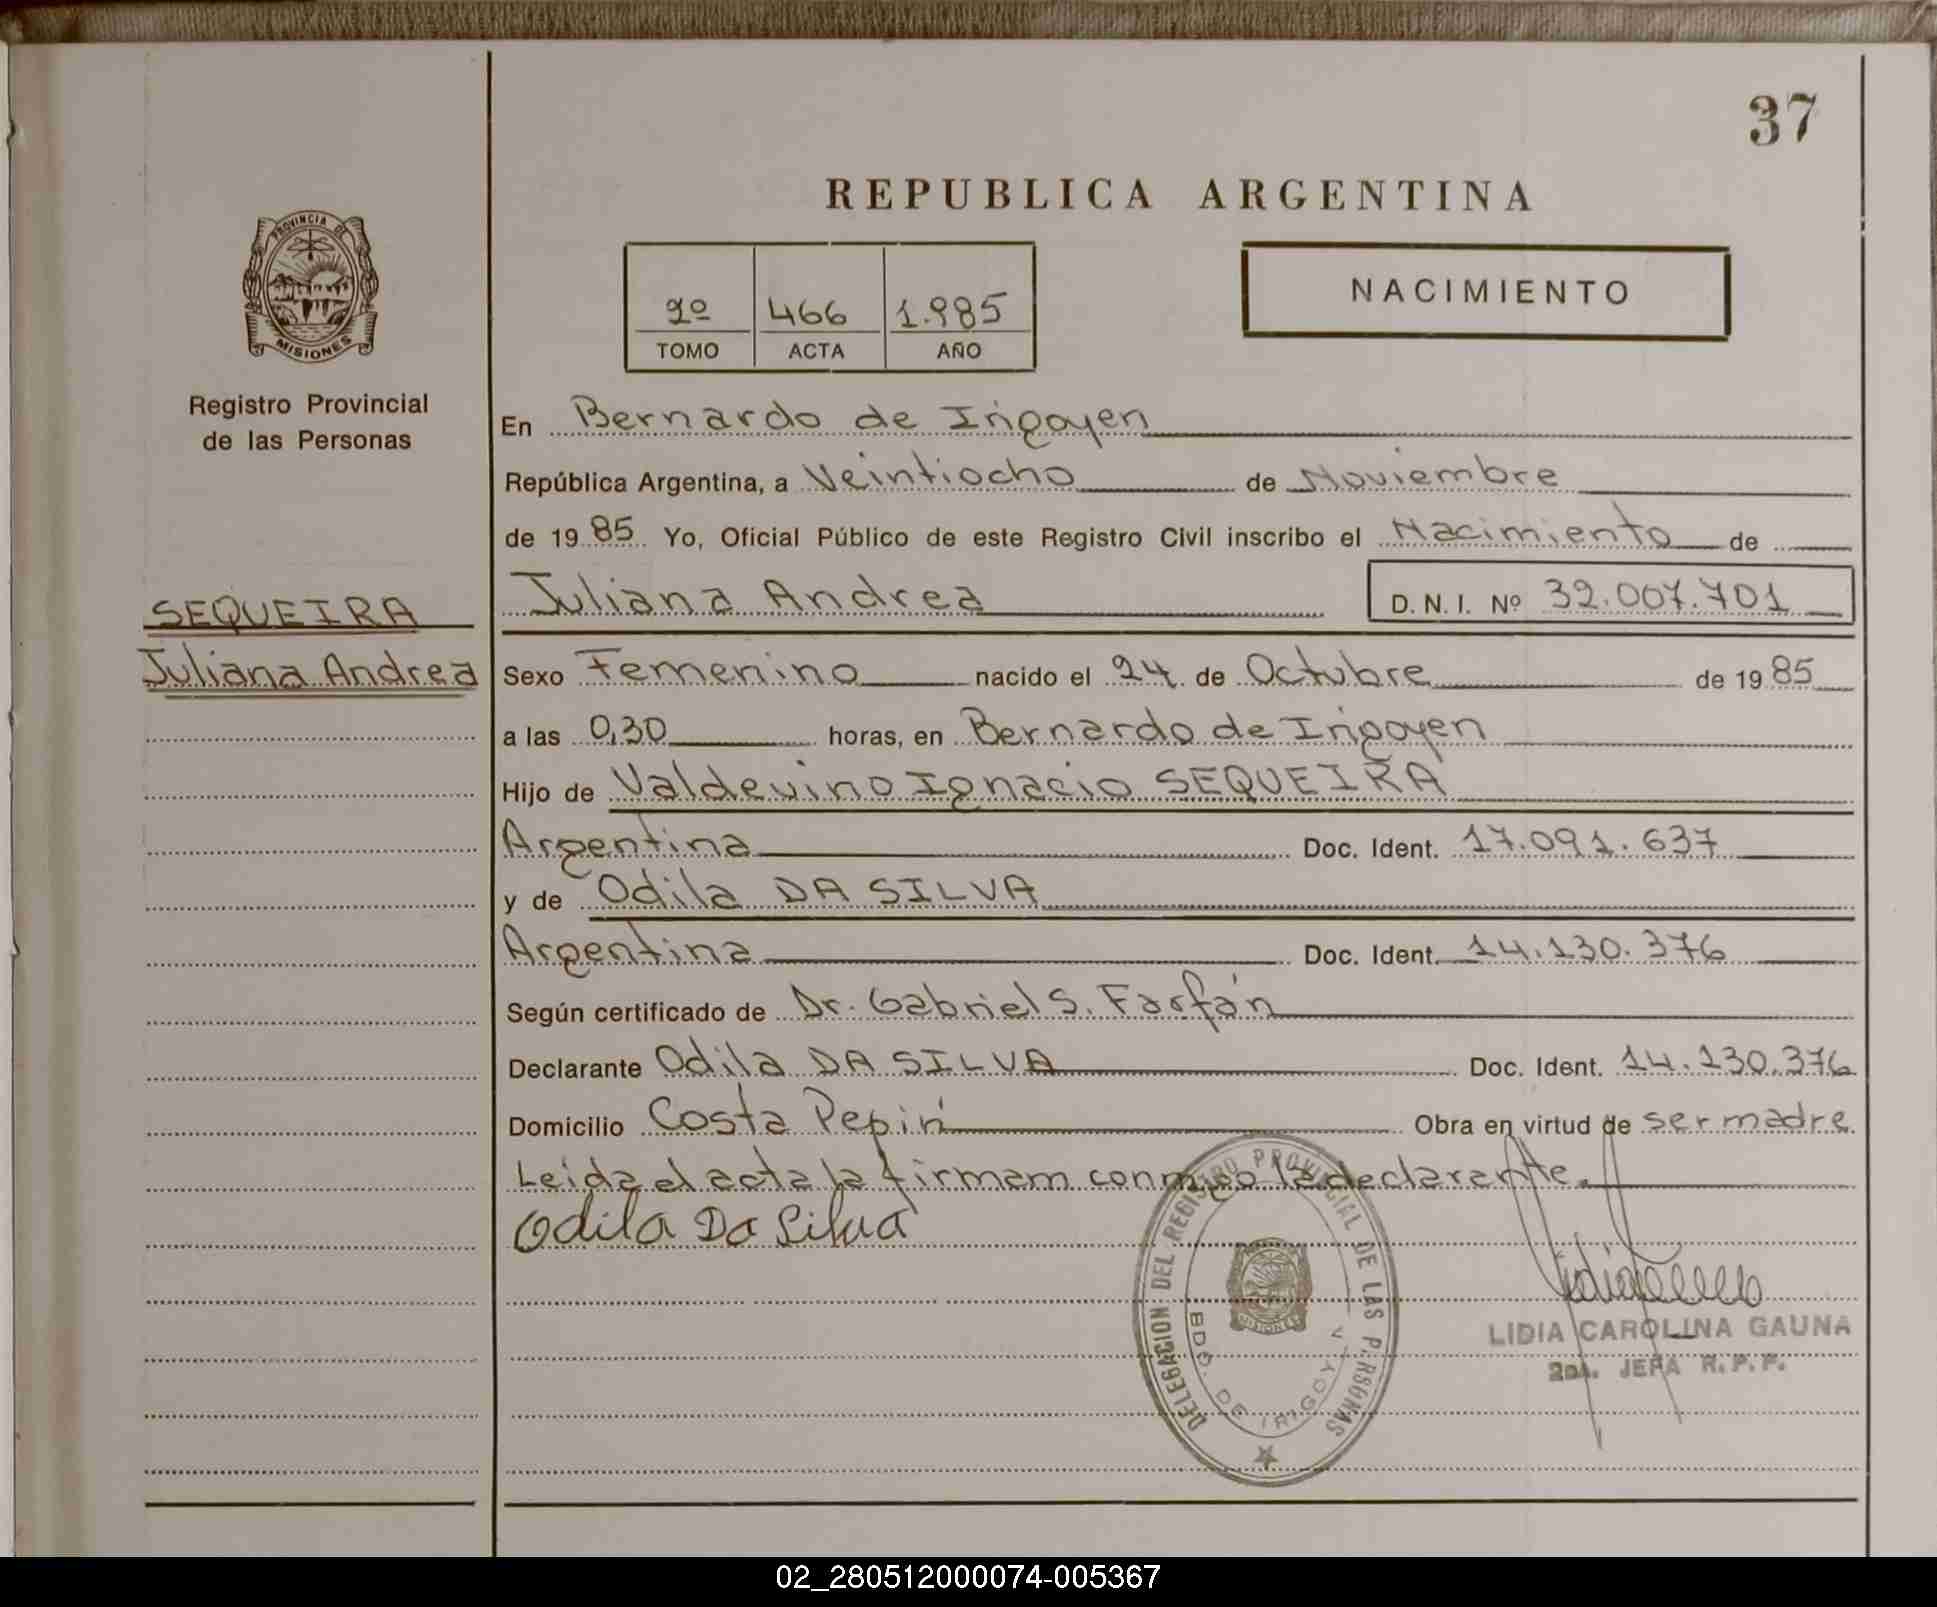 37
REPUBLICA ARGENTINA
PROVINCIA DE
MISIONES
Registro Provincial
de las Personas
2º 466 1.985
TOMO ACTA AÑO
NACIMIENTO
En Bernardo de Irigoyen
República Argentina, a Veintiocho de Noviembre
de 1985 Yo, Oficial Público de este Registro Civil inscribo el Nacimiento de
Juliana Andrea D.N.I. Nº 32.007.701
SEQUEIRA
Juliana Andrea
Sexo Femenino nacido el 24 de Octubre de 1985
a las 0,30 horas, en Bernardo de Irigoyen
Hijo de Valdevino Ignacio SEQUEIRA
Argentina Doc. Ident. 17.091.637
y de Odila DA SILVA
Argentina Doc. Ident. 14.130.376
Según certificado de Dr. Gabriel S. Farfán
Declarante Odila DA SILVA Doc. Ident. 14.130.376
Domicilio Costa Pepirí Obra en virtud de ser madre
Leida el acta la firmam conmigo la declarante.
Odila Da Silva
DELEGACION DEL REGISTRO PROVINCIAL DE LAS P.RSONAS
MISIONES
BDO. DE IRIGOY
LIDIA CAROLINA GAUNA
2da. JEFA R.P.P.
02_280512000074-005367